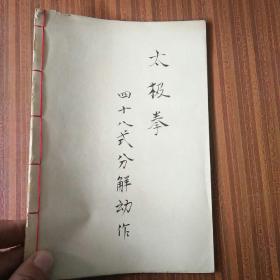 太极拳
四十八式分解动作